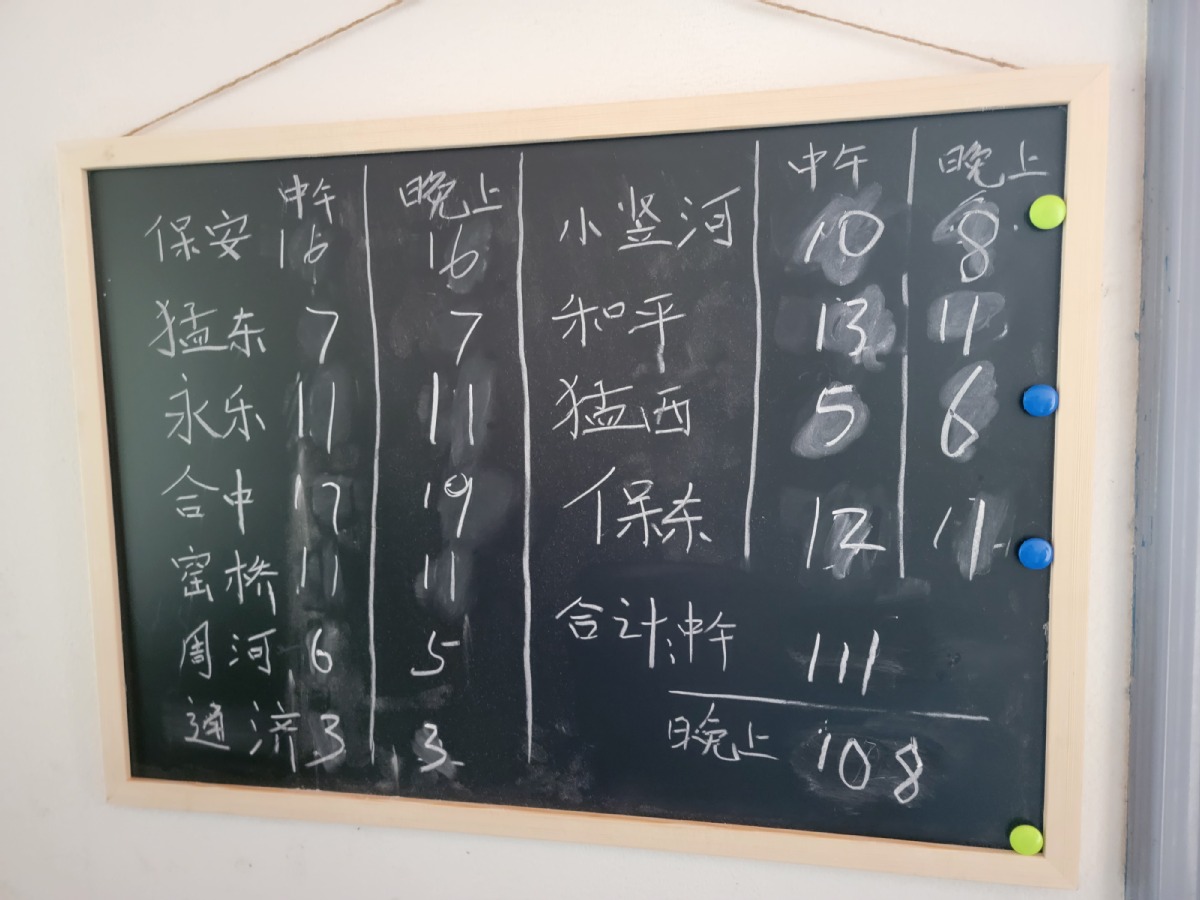 中午 晚上
保安 16 16
猛东 7 7
永乐 11 11
合中 17 19
窑桥 11 11
周河 6 5
通济 3 3
中午 晚上
小竖河 10 8
和平 13 11
猛西 5 6
保东 12 11
合计:中午 111
晚上 108